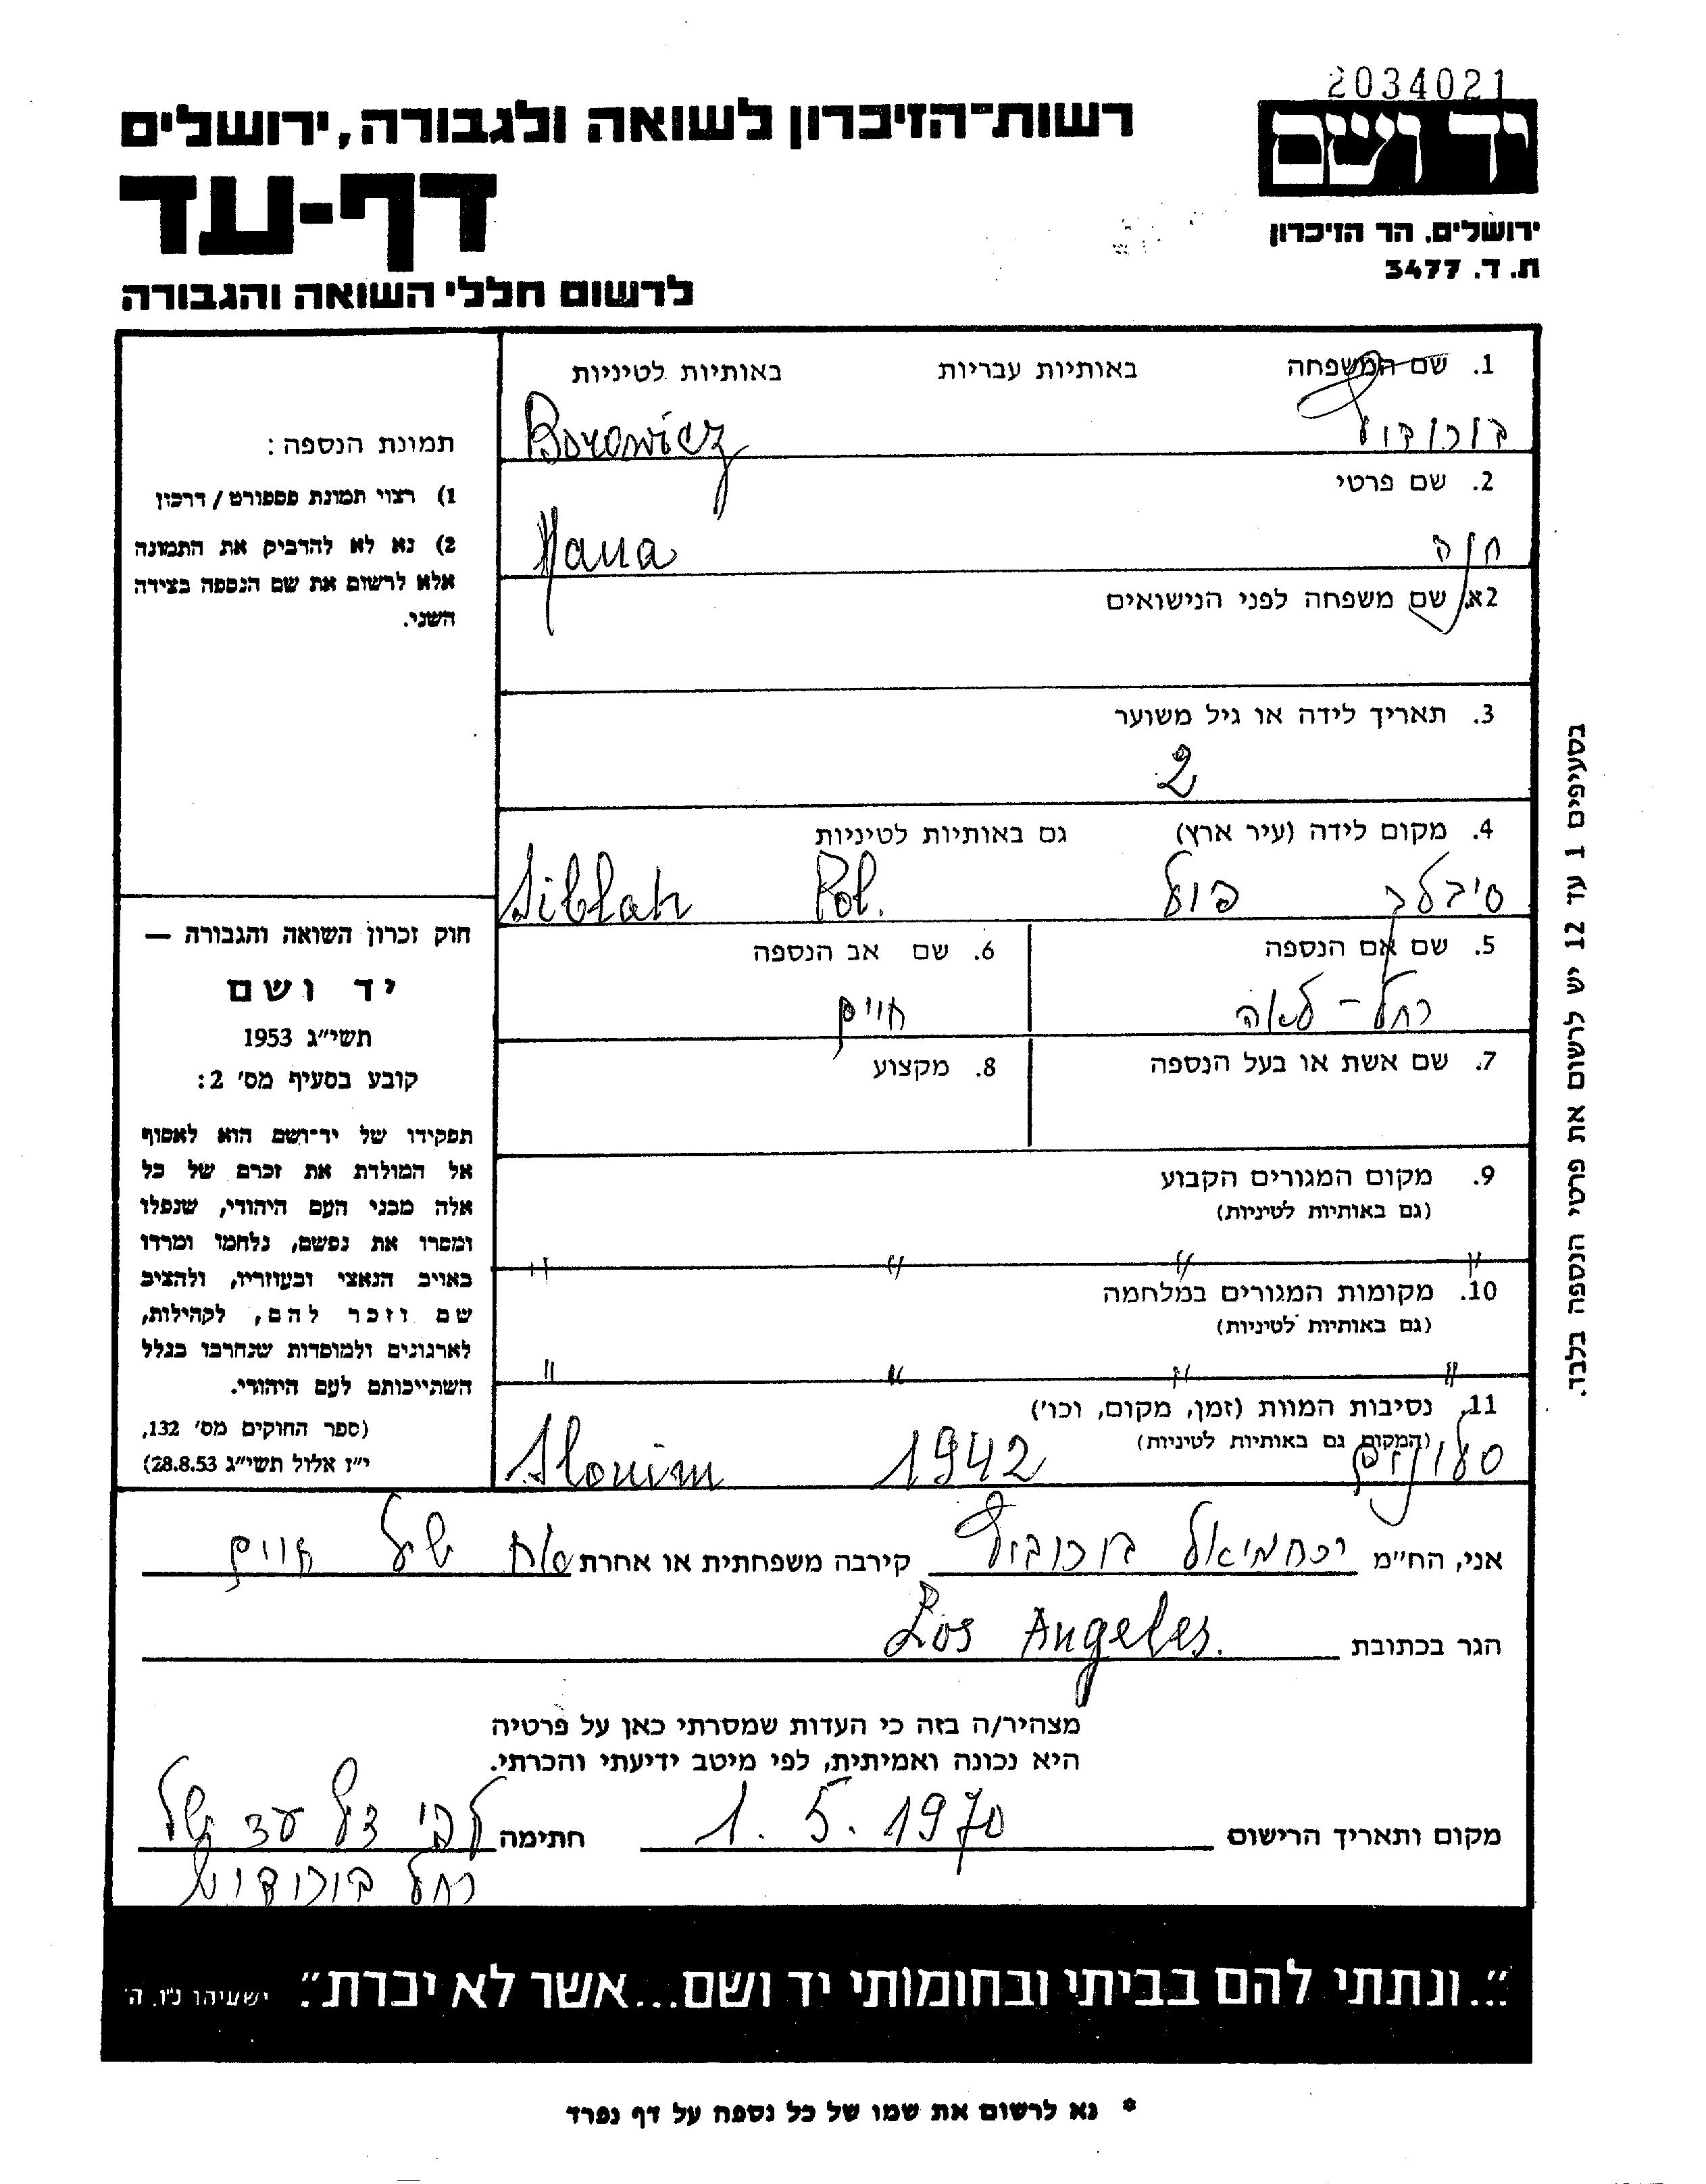 2034021
יד ושם
רשות־הזיכרון לשואה ולגבורה, ירושלים
דף-עד
ירושלים, הר הזיכרון
ת. ד. 3477
לרשום חללי השואה והגבורה
1. שם המשפחה באותיות עבריות באותיות לטיניות
Borowicz
2. שם פרטי
חנה Hana
2א. שם משפחה לפני הנישואים
3. תאריך לידה או גיל משוער
2
4. מקום לידה (עיר ארץ) גם באותיות לטיניות
פול Pol.
5. שם אם הנספה
רחל - לאה
6. שם אב הנספה
חיים
7. שם אשת או בעל הנספה
8. מקצוע
9. מקום המגורים הקבוע
(גם באותיות לטיניות)
〃 〃 〃 〃
10. מקומות המגורים במלחמה
(גם באותיות לטיניות)
〃 〃 〃 〃
11. נסיבות המוות (זמן, מקום, וכו')
(המקום גם באותיות לטיניות)
סלונים 1942 Slonim
תמונת הנספה:
1) רצוי תמונת פספורט / דרכון
2) נא לא להדביק את התמונה
אלא לרשום את שם הנספה בצידה
השני.
חוק זכרון השואה והגבורה —
יד ושם
תשי״ג 1953
קובע בסעיף מס' 2:
תפקידו של יד־ושם הוא לאסוף
אל המולדת את זכרם של כל
אלה מבני העם היהודי, שנפלו
ומסרו את נפשם, נלחמו ומרדו
באויב הנאצי ובעוזריו, ולהציב
שם וזכר להם, לקהילות,
לארגונים ולמוסדות שנחרבו בגלל
השתייכותם לעם היהודי.
(ספר החוקים מס' 132,
י״ז אלול תשי״ג 28.8.53)
בסעיפים 1 עד 12 יש לרשום את פרטי הנספה בלבד.
אני, הח״מ ירחמיאל קירבה משפחתית או אחרת אח של חיים
הגר בכתובת Los Angeles.
מצהיר/ה בזה כי העדות שמסרתי כאן על פרטיה
היא נכונה ואמיתית, לפי מיטב ידיעתי והכרתי.
מקום ותאריך הרישום 1. 5. 1970 חתימה לפי דף עד של
רחל
"...ונתתי להם בביתי ובחומותי יד ושם...אשר לא יכרת". ישעיהו נ״ו, ה'
* נא לרשום את שמו של כל נספה על דף נפרד